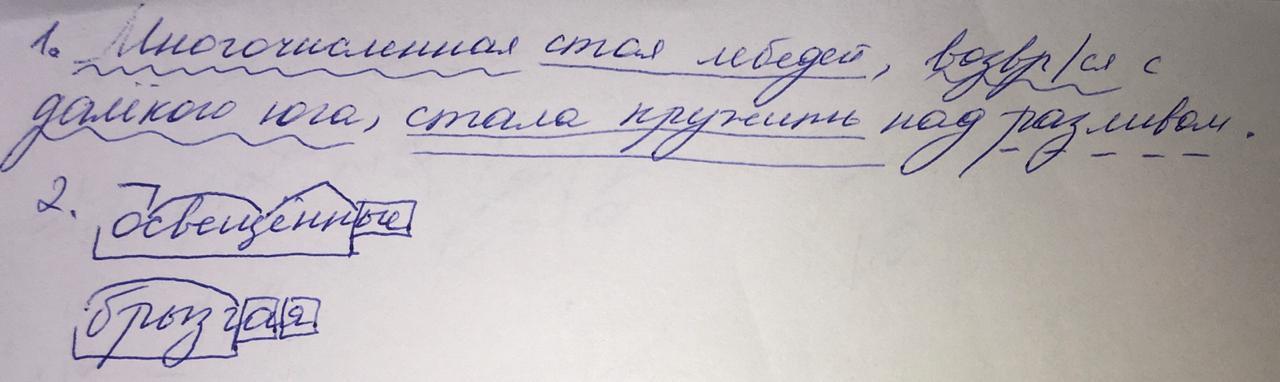 1. Многочисленная стая лебедей, возвр/ся с
далёкого юга, стала кружить над разливом.
2. освещённые
брызгая